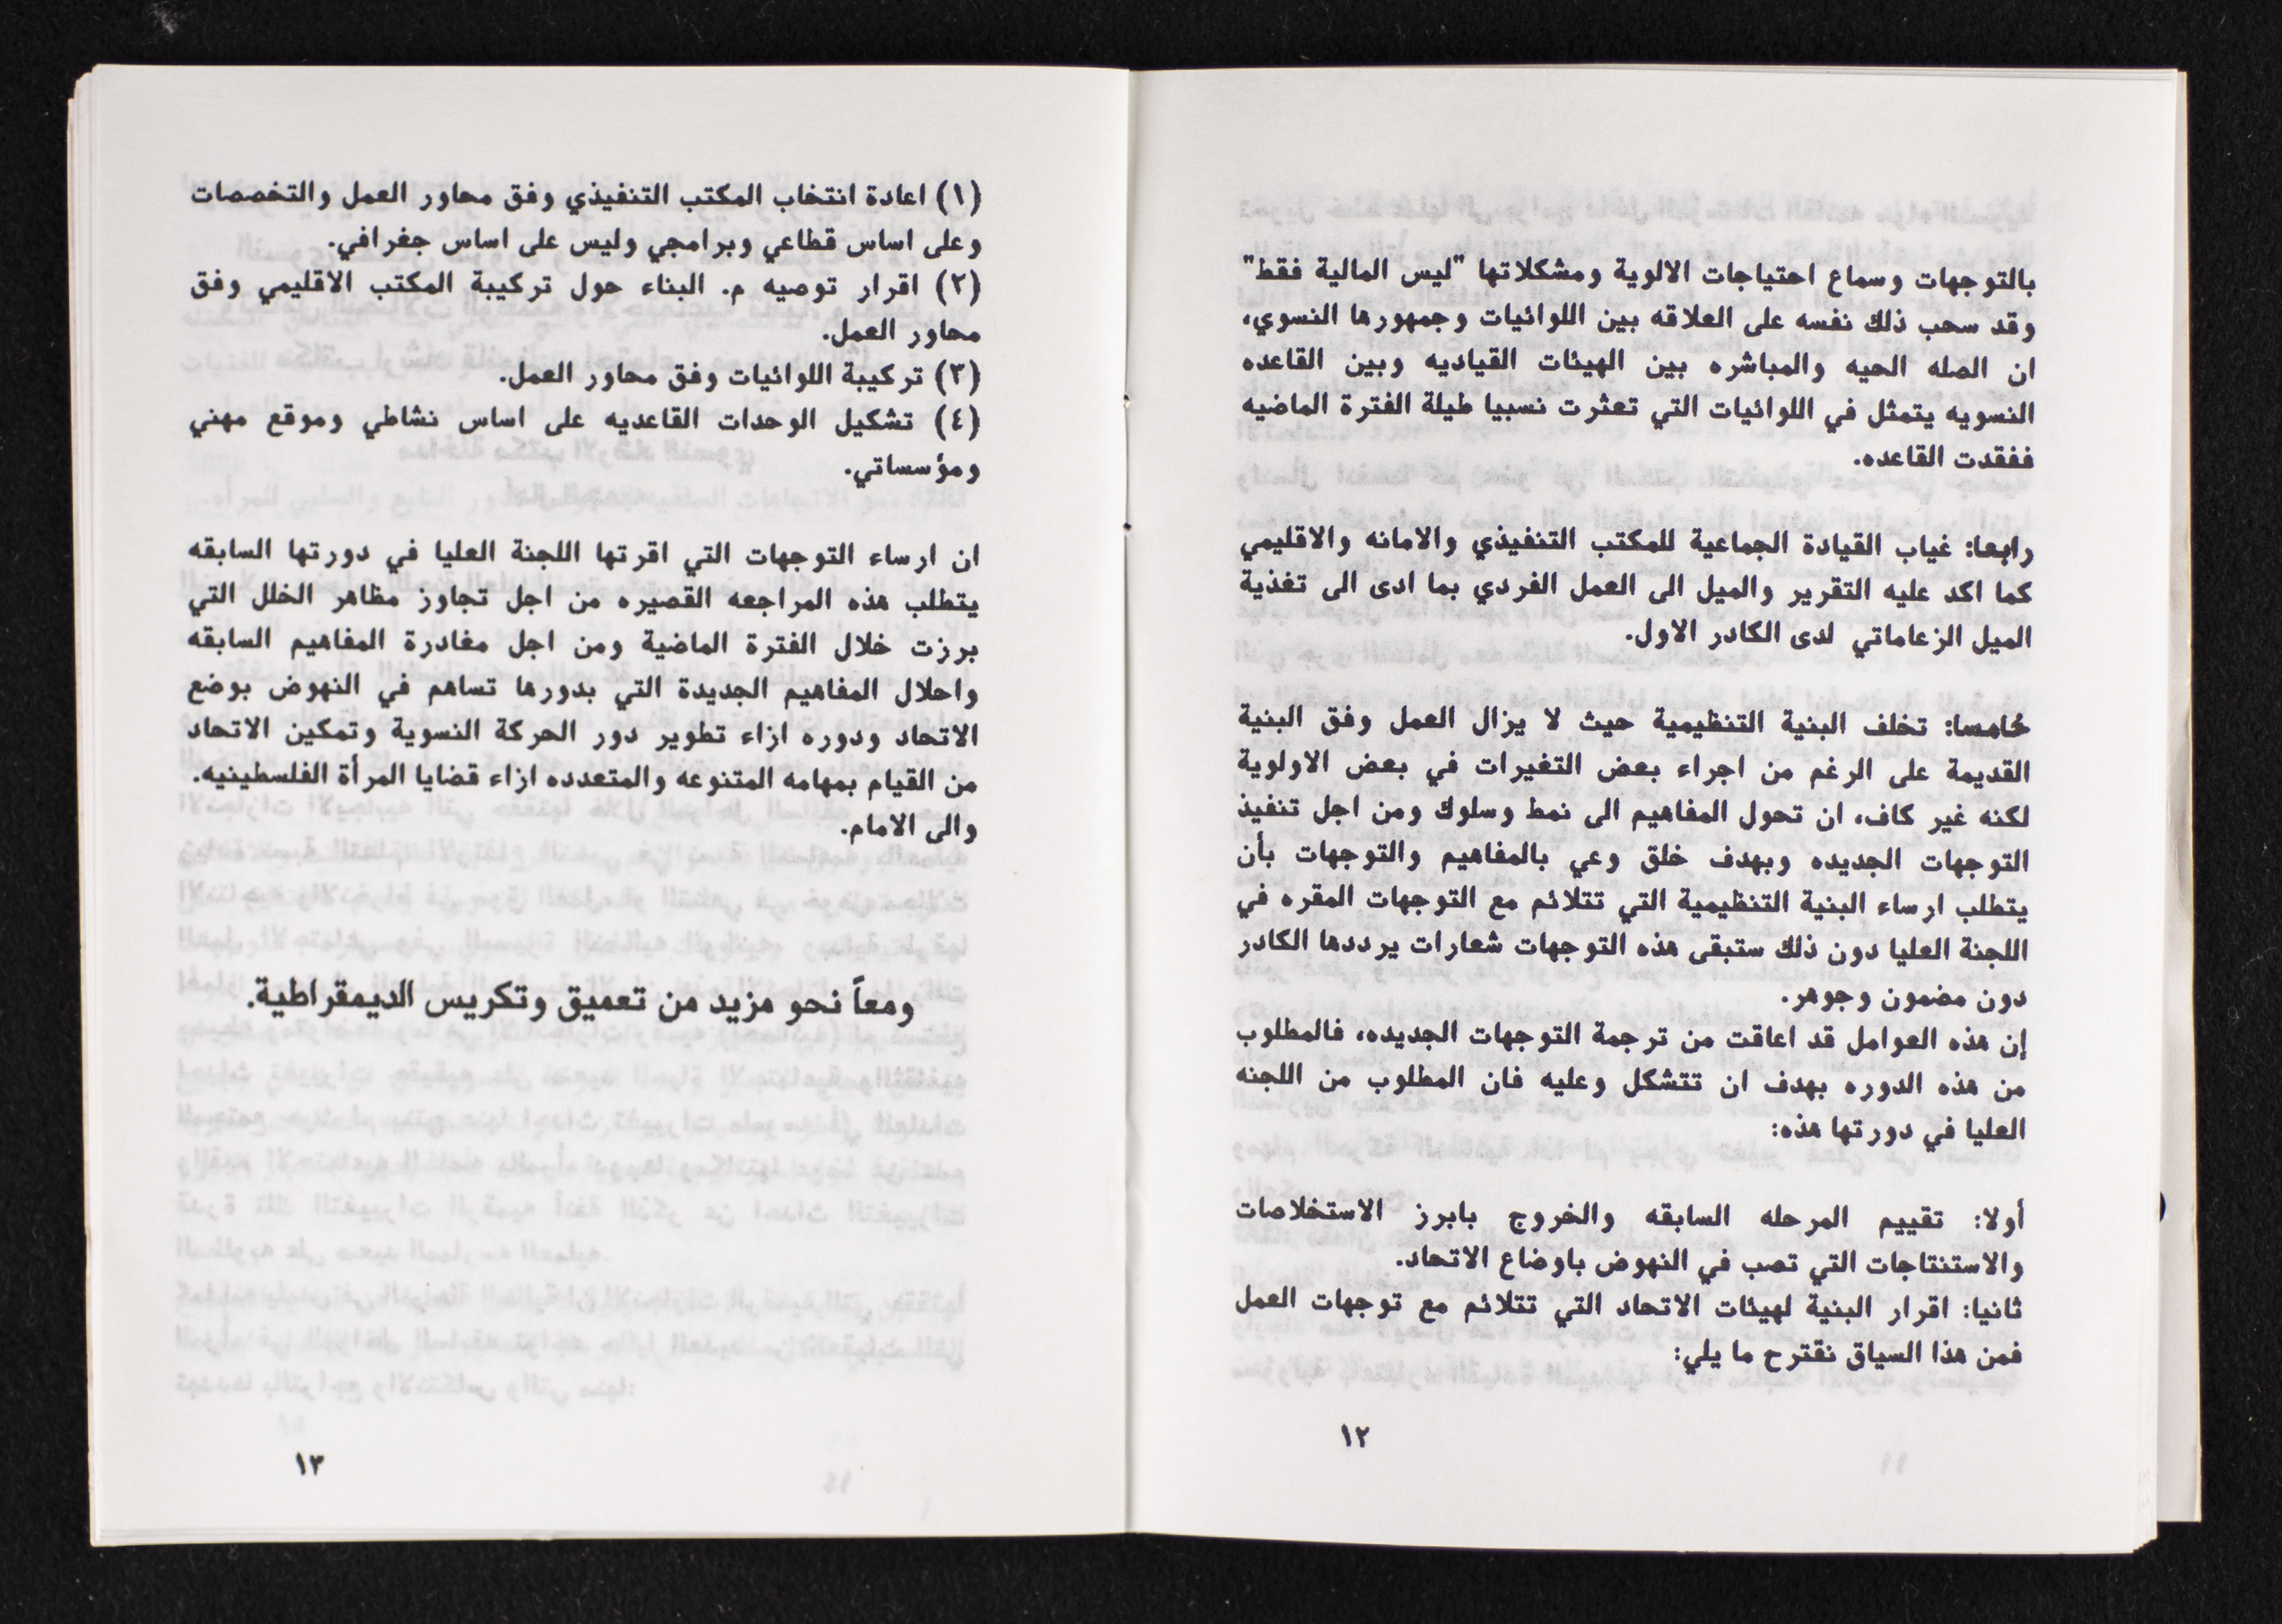 بالتوجهات وسماع احتياجات الالوية ومشكلاتها "ليس المالية فقط"
وقد سحب ذلك نفسه على العلاقه بين اللوائيات وجمهورها النسوي،
ان الصله الحيه والمباشره بين الهيئات القياديه وبين القاعده
النسويه يتمثل في اللوائيات التي تعثرت نسبيا طيلة الفترة الماضيه
ففقدت القاعده.
رابعا: غياب القيادة الجماعية للمكتب التنفيذي والامانه والاقليمي
كما اكد عليه التقرير والميل الى العمل الفردي بما ادى الى تغذية
الميل الزعاماتي لدى الكادر الاول.
خامسا: تخلف البنية التنظيمية حيث لا يزال العمل وفق البنية
القديمة على الرغم من اجراء بعض التغيرات في بعض الاولوية
لكنه غير كاف، ان تحول المفاهيم الى نمط وسلوك ومن اجل تنفيذ
التوجهات الجديده وبهدف خلق وعي بالمفاهيم والتوجهات بأن
يتطلب ارساء البنية التنظيمية التي تتلائم مع التوجهات المقره في
اللجنة العليا دون ذلك ستبقى هذه التوجهات شعارات يرددها الكادر
دون مضمون وجوهر.
إن هذه العوامل قد اعاقت من ترجمة التوجهات الجديده، فالمطلوب
من هذه الدوره بهدف ان تتشكل وعليه فان المطلوب من اللجنه
العليا في دورتها هذه:
أولا: تقييم المرحله السابقه والخروج بابرز الاستخلاصات
والاستنتاجات التي تصب في النهوض باوضاع الاتحاد.
ثانيا: اقرار البنية لهيئات الاتحاد التي تتلائم مع توجهات العمل
فمن هذا السياق نقترح ما يلي:
١٢
(١) اعادة انتخاب المكتب التنفيذي وفق محاور العمل والتخصصات
وعلى اساس قطاعي وبرامجي وليس على اساس جغرافي.
(٢) اقرار توصيه م. البناء حول تركيبة المكتب الاقليمي وفق
محاور العمل.
(٣) تركيبة اللوائيات وفق محاور العمل.
(٤) تشكيل الوحدات القاعديه على اساس نشاطي وموقع مهني
ومؤسساتي.
ان ارساء التوجهات التي اقرتها اللجنة العليا في دورتها السابقه
يتطلب هذه المراجعه القصيره من اجل تجاوز مظاهر الخلل التي
برزت خلال الفترة الماضية ومن اجل مغادرة المفاهيم السابقه
واحلال المفاهيم الجديدة التي بدورها تساهم في النهوض بوضع
الاتحاد ودوره ازاء تطوير دور الحركة النسوية وتمكين الاتحاد
من القيام بمهامه المتنوعه والمتعدده ازاء قضايا المرأة الفلسطينيه.
والى الامام.
ومعاً نحو مزيد من تعميق وتكريس الديمقراطية.
١٣